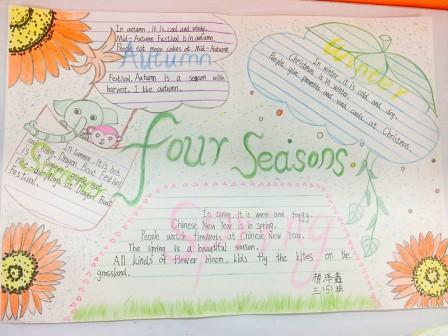 In autumn, it is cool and windy.
Mid-Autumn Festival is in autumn.
People eat moon cakes at Mid-Autumn
Autumn
Festival. Autumn is a season with
harvest. I like autumn.
Winter
In winter, it is cold and dry.
Christmas is in winter.
People give presents and send cards at Christmas.
Four Seasons
Summer
In summer, it is hot
and Dragon Boat Festival
is
at Dragon Boat
Festival.
Spring
In spring, it is warm and foggy.
Chinese New Year is in spring.
People watch fireworks at Chinese New Year.
The spring is a beautiful season.
All kinds of flower bloom, kids fly the kites on the
grassland.
三(5)班